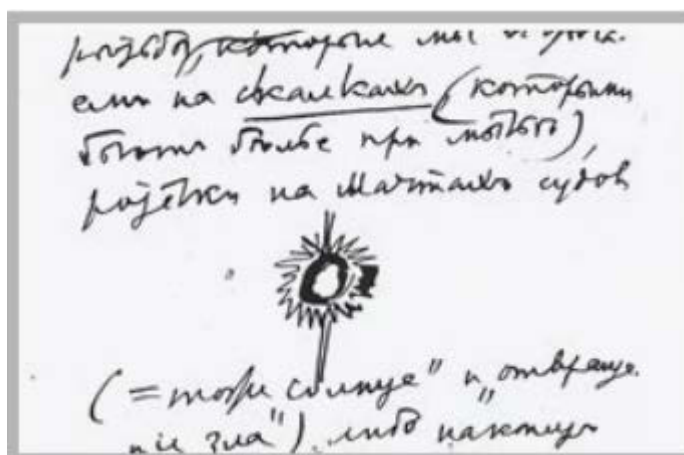 которые мы
емъ на скалкахъ (которыми
бьютъ бѣлье при мытьѣ),
розетки на мачтахъ судовъ
(= тоже солнце" и „отвраще-
ніе зла"), либо наконецъ